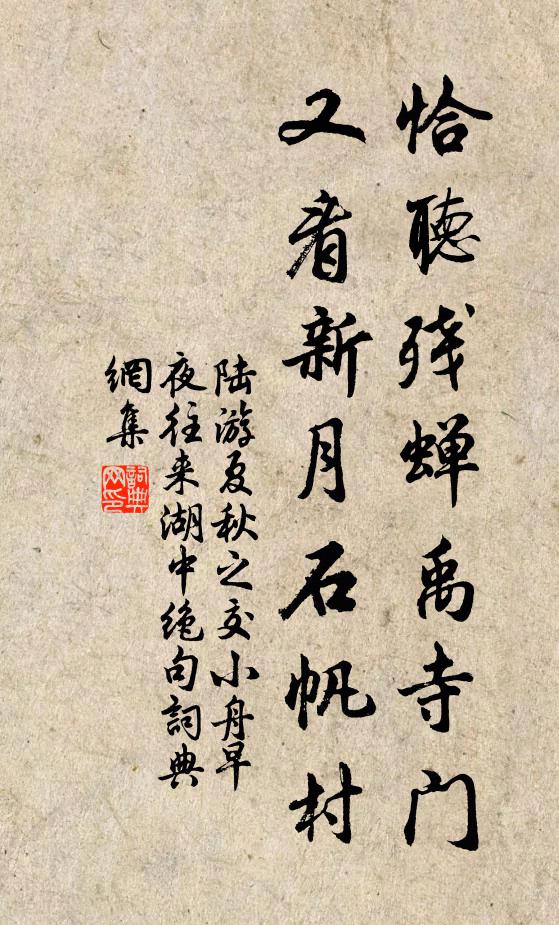 恰聽残蝉禹寺门
又看新月石帆村
陆游夏秋之交小舟早
夜往来湖中绝句詞典
網集
詞典
网印